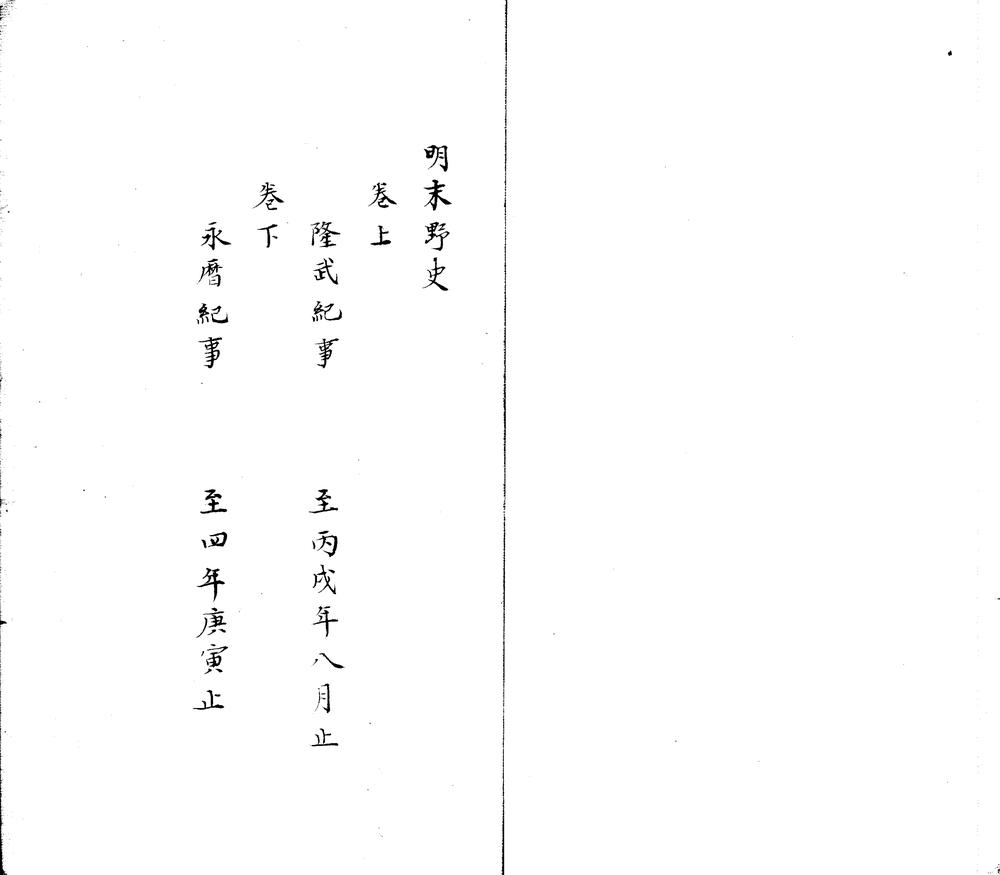 明末野史
卷上
隆武紀事 至丙戌年八月止
卷下
永曆紀事 至四年庚寅止